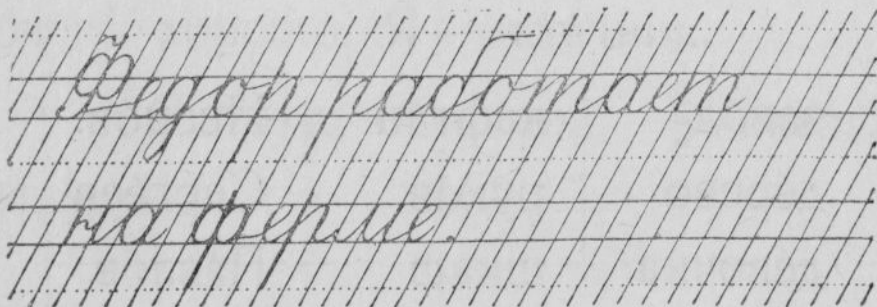 Федор работает
на ферме.